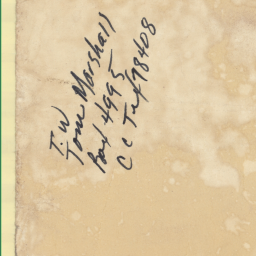 T.W
Tom Marshall
Box 4995
C C Tex 78408